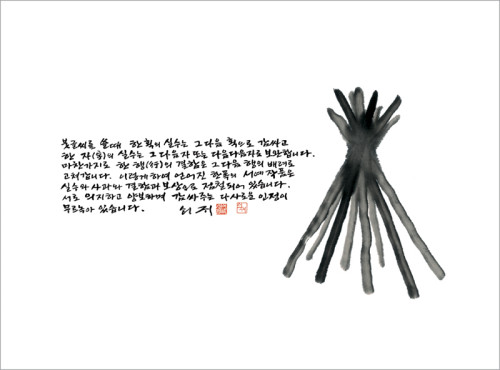 붓글씨를 쓸때 한획의 실수는 그 다음 획으로 감싸고
한 자(字)의 실수는 그 다음자 또는 다음다음자로 보완합니다.
마찬가지로 한 행(行)의 결함은 그 다음 행의 배려로
고쳐갑니다. 이렇게하여 얻어진 한폭의 서예 작품은
실수와 사과와 결함과 보상으로 점철되어 있습니다.
서로 의지하고 양보하며 감싸주는 다사로운 인정이
무르녹아 있습니다.